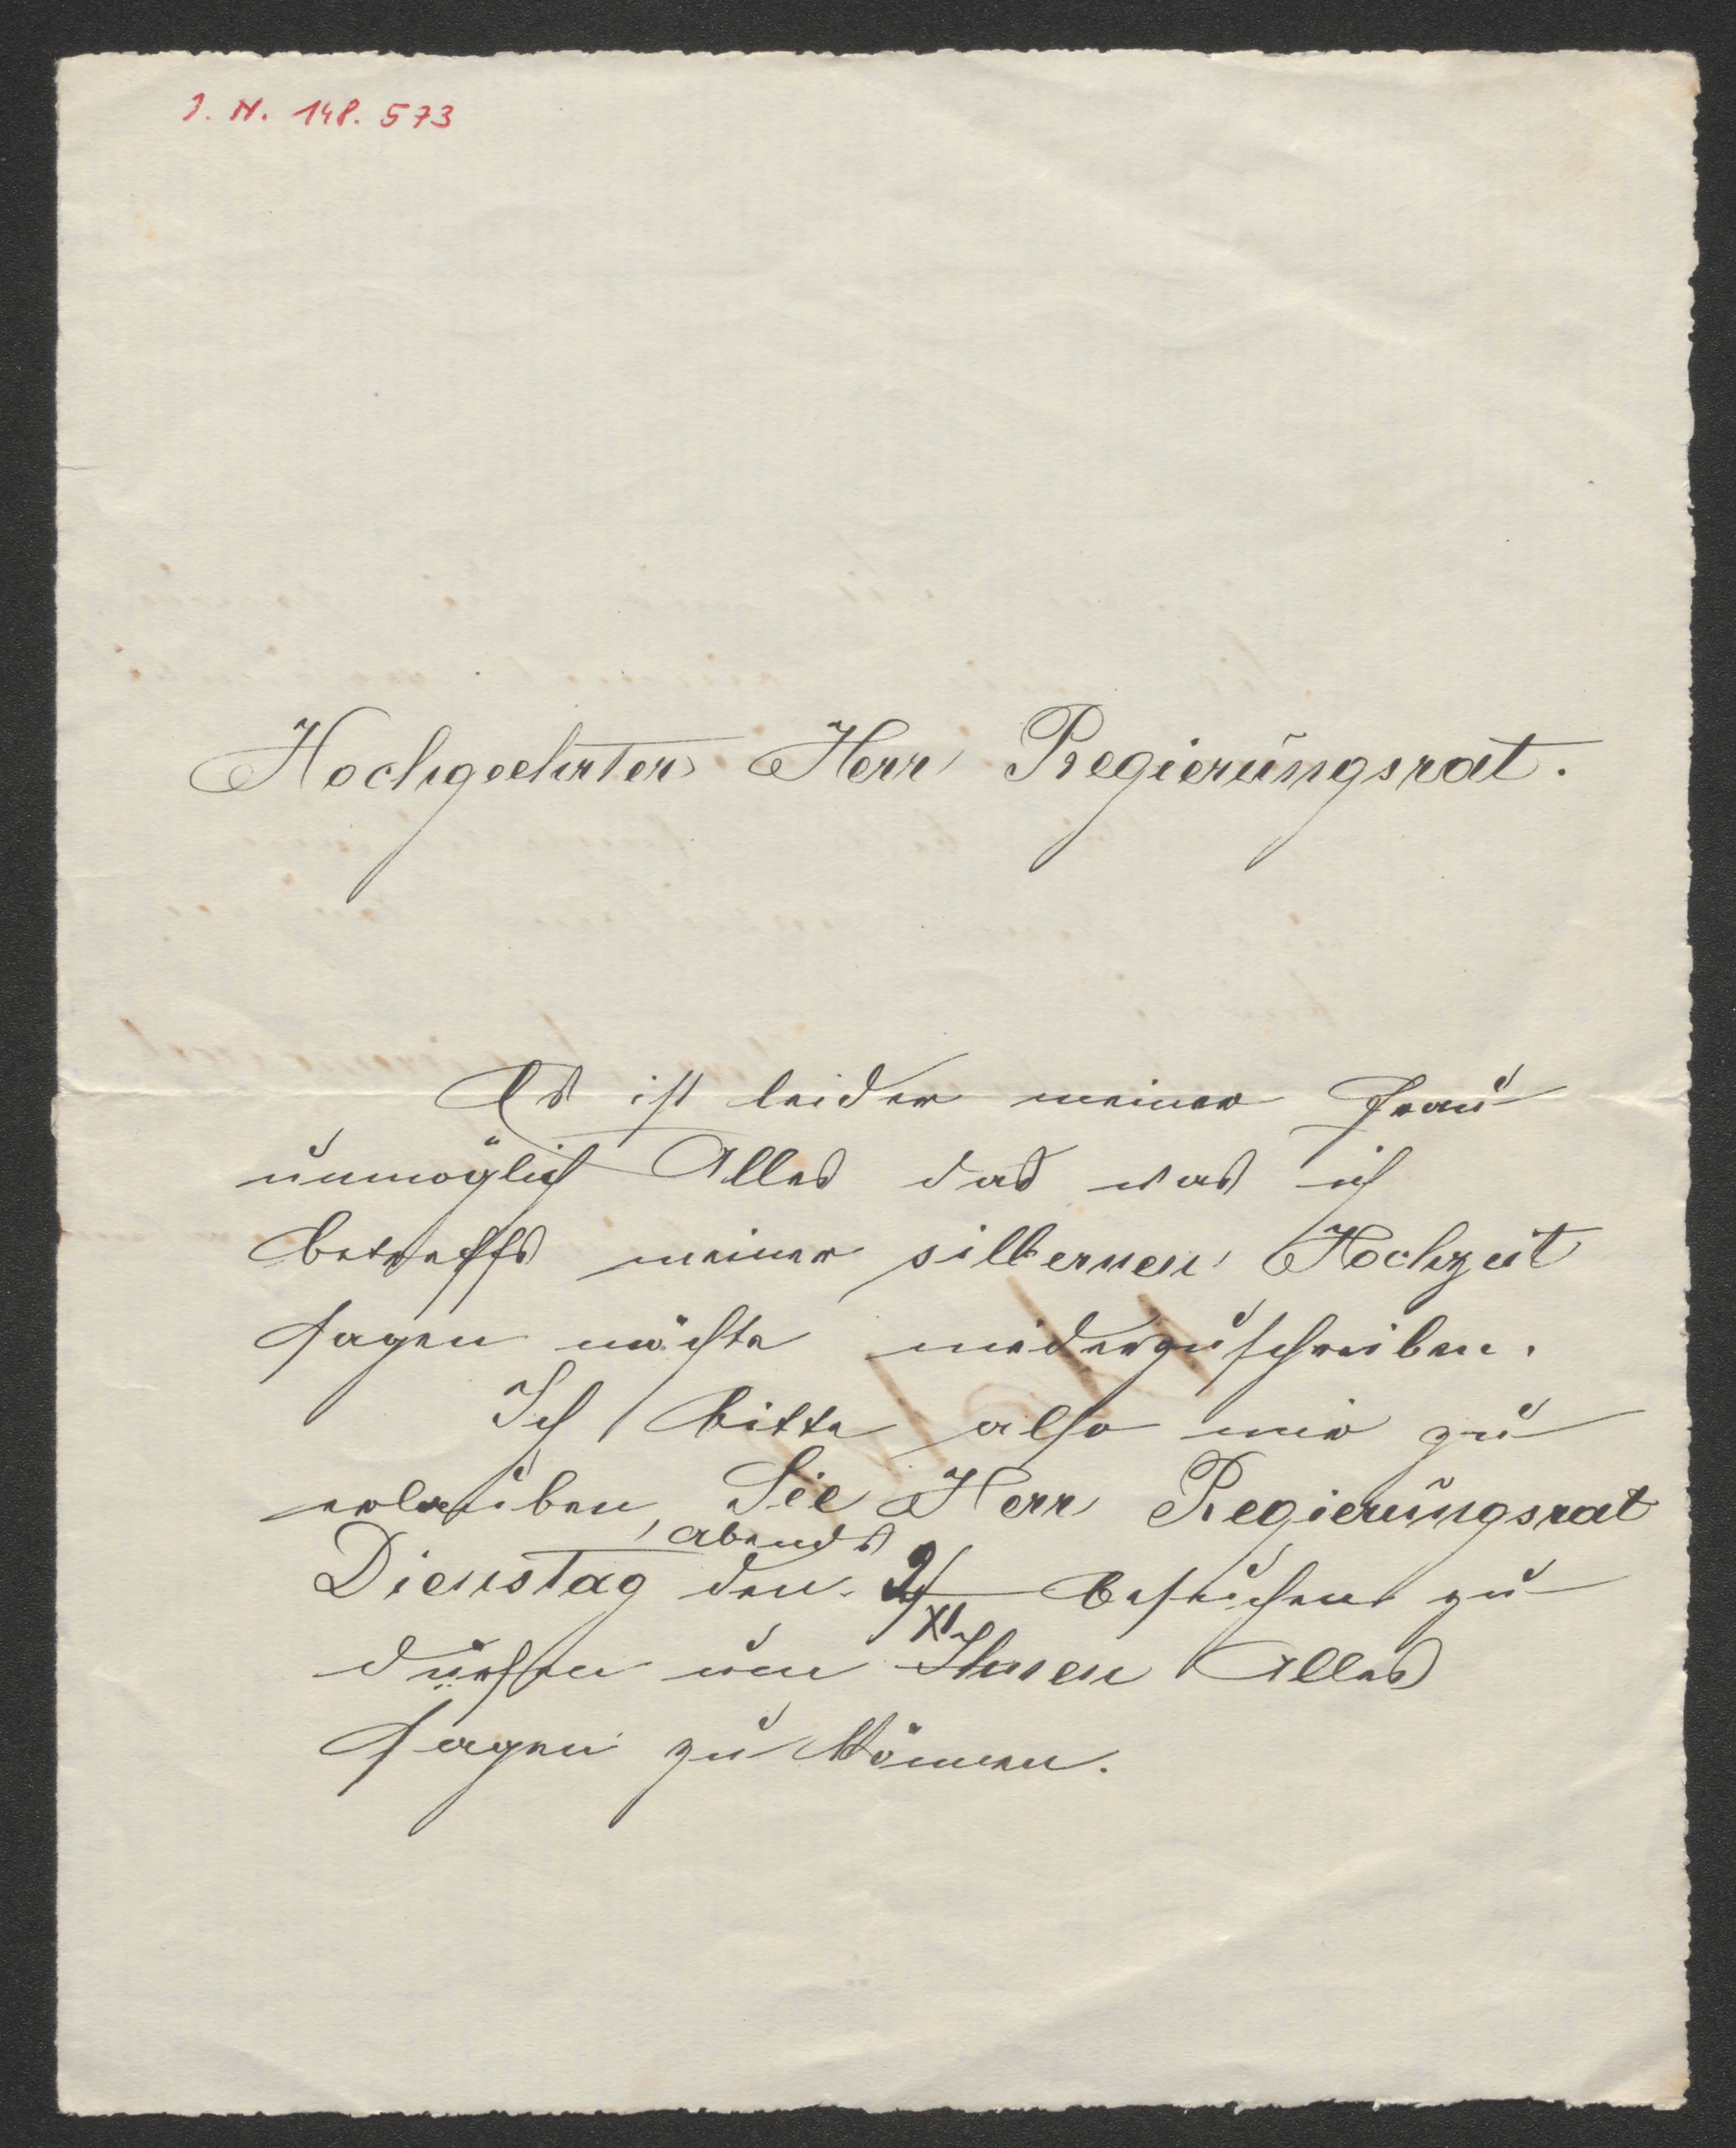 J. N. 148.573
Hochgeehrter Herr Regierungsrat.
Es ist leider meiner Frau
unmöglich Alles das was ich
betreffs meiner silbernen Hochzeit
sagen möchte niederzuschreiben.
Ich bitte also mir zu
erlauben, Sie Herr Regierungsrat
abends
Dienstag den 2/XI besuchen zu
dürfen um Ihnen Alles
sagen zu können.